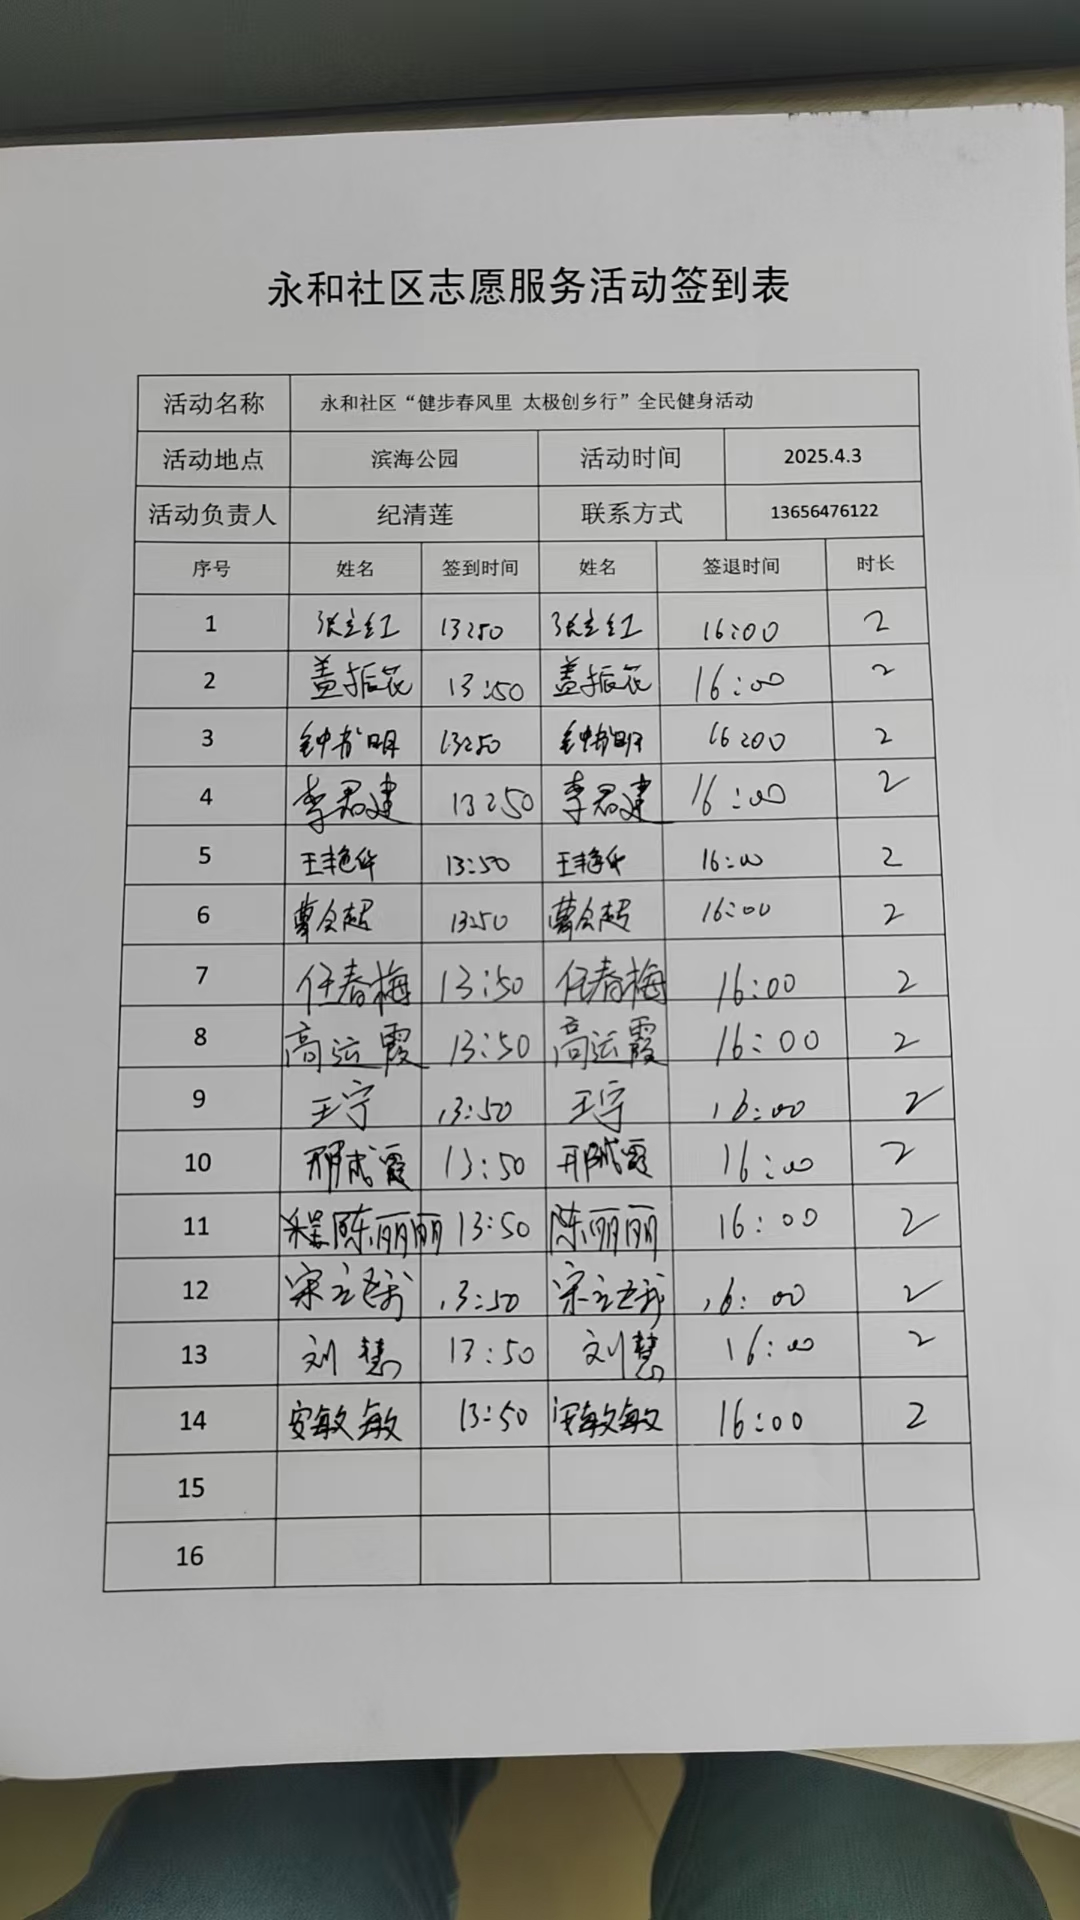 永和社区志愿服务活动签到表
活动名称 永和社区“健步春风里 太极创乡行”全民健身活动
活动地点 滨海公园 活动时间 2025.4.3
活动负责人 纪清莲 联系方式 13656476122
序号 姓名 签到时间 姓名 签退时间 时长
1 张立红 13:50 张立红 16:00 2
2 盖振花 13:50 盖振花 16:00 2
3 钟 明 13:50 钟 明 16:00 2
4 李君建 13:50 李君建 16:00 2
5 王艳华 13:50 王艳华 16:00 2
6 曹会超 13:50 曹会超 16:00 2
7 任春梅 13:50 任春梅 16:00 2
8 高运霞 13:50 高运霞 16:00 2
9 王宁 13:50 王宁 16:00 2
10 邢成霞 13:50 邢成霞 16:00 2
11 陈丽丽 13:50 陈丽丽 16:00 2
12 宋立 13:50 宋立 16:00 2
13 刘慧 13:50 刘慧 16:00 2
14 安敏敏 13:50 安敏敏 16:00 2
15
16